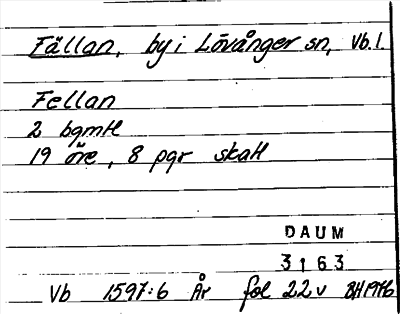 Fällan, by i Lövånger sn, Vb.l.
Fellan
2 bgmtl
19 öre, 8 pgr skatt
DAUM
3163
Vb 1597:6 År fol 22v BH 1976